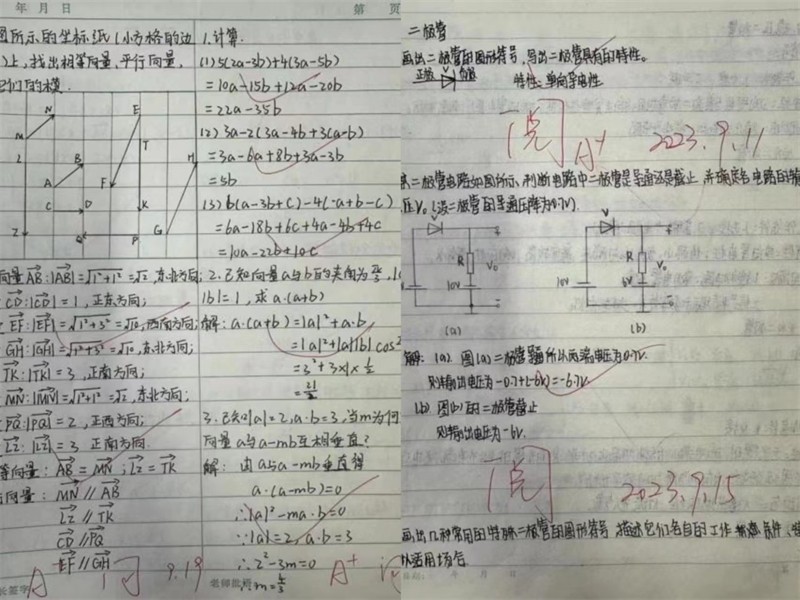 年 月 日
图所示的坐标纸(小方格的边
)上,找出相等向量、平行向量,
它们的模.
M
N
E
L
T
H
A
B
F
C
D
K
Z
Q
P
G
向量AB:|AB|=√1²+1²=√2,东北方向;
CD:|CD|=1,正东方向;
EF:|EF|=√1²+3²=√10,西南方向;
GH:|GH|=√1²+3²=√10,东北方向;
TK:|TK|=3,正南方向;
MN:|MN|=√1²+1²=√2,东北方向;
PQ:|PQ|=2,正西方向;
LZ:|LZ|=3 正南方向.
等向量:AB=MN;LZ=TK
向量:MN∥AB
LZ∥TK
CD∥PQ
EF∥GH
长签字
A
阅 9.19
第 页
1.计算.
(1)5(2a-3b)+4(3a-5b)
=10a-15b+12a-20b
=22a-35b
(2)3a-2(3a-4b+3(a-b)
=3a-6a+8b+3a-3b
=5b
(3)6(a-3b+c)-4(-a+b-c)
=6a-18b+6c+4a-4b+4c
=10a-22b+10c
2.已知向量a与b的夹角为π/3,
|b|=1,求a·(a+b)
解:a·(a+b)=|a|²+a·b
=|a|²+|a||b|cos
=3²+3×1×1/2
=21/2
3.已知|a|=2,a·b=3,当m为何
向量a与a-mb互相垂直?
解: 由a与a-mb垂直得
a·(a-mb)=0
∴|a|²-ma·b=0
∵|a|=2,a·b=3
∴2²-3m=0
∴m=4/3
老师批语
A+
二极管
画出二极管的图形符号,写出二极管具有的特性。
正极 V 负极 特性:单向导电性
阅 A+ 2023.9.11
二极管电路如图所示,判断电路中二极管是导通还是截止,并确定各电路的输
压V₀(设二极管的导通压降为0.7V).
V
R
V₀
10V
(a)
V
R
V₀
10V
6V
(b)
解:(a).图(a)二极管导通所以两端电压为0.7V.
则输出电压为-0.7+(-6V)=-6.7V.
(b).图(b)的二极管截止
则输出电压为-6V.
阅 2023.9.15
画出几种常用的特殊二极管的图形符号,描述它们各自的工作条件、
以适用场合.
年 月 日